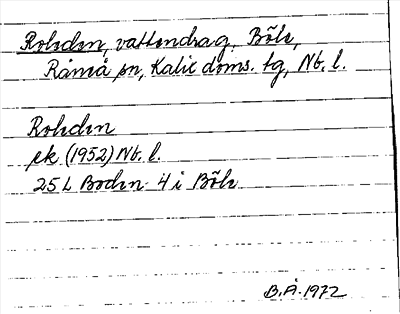 Roleden, vattendrag, Böle,
Råneå sn, Kalix doms. tg, Nb. l.
Roleden
ek (1952) Nb. l.
25 L Boden 4 i Böle
B.Å. 1972